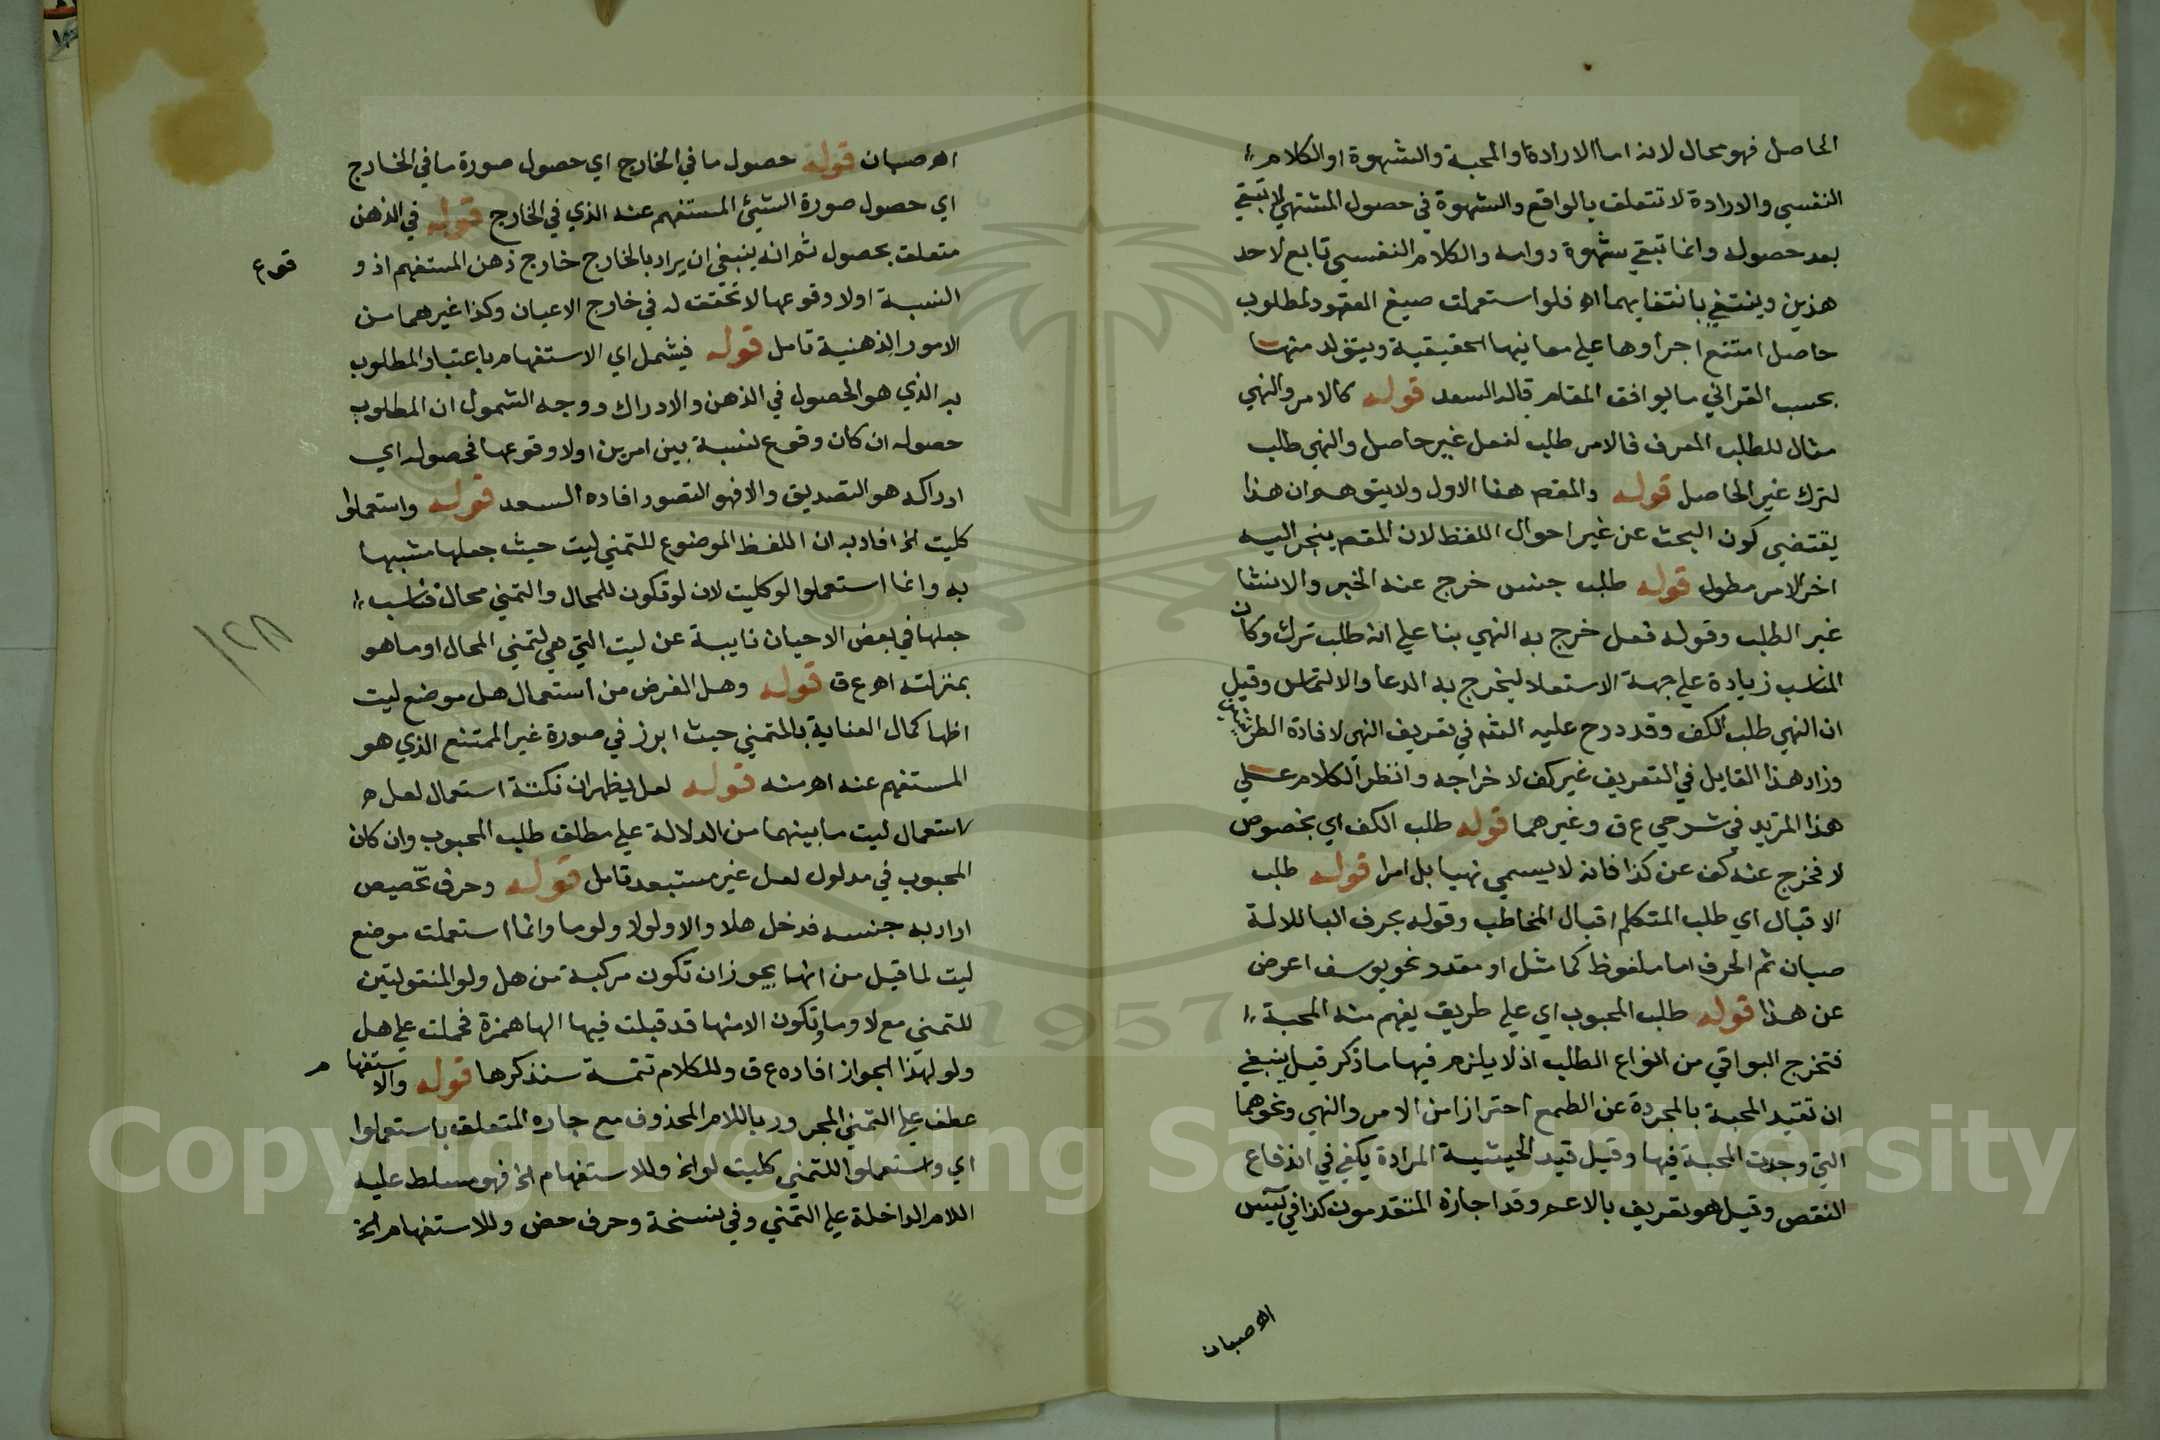 الحاصل فهو محال لانه اما الارادة او المحبة والشهوة او الكلام
النفسي والارادة لا تتعلق بالواقع والشهوة في حصول المشتهي لا تبقي
بعد حصوله وانما تبقي شهوة دوامه والكلام النفسي تابع لاحد
هذين وينتفي بانتفايهما اه فلو استعملت صيغ المقهود لمطلوب
حاصل امتنع اجراوها علي معانيها الحقيقية ويتولد منها
بحسب القراني ما يوافق المقام قاله السعد قوله كالامر والنهي
مثال للطلب المعرف فالامر طلب لفعل غير حاصل والنهي طلب
لترك غير الحاصل قوله والمقصم هنا الاول ولا يتوهم ان هذا
يقتضي كون البحث عن غير احوال اللفظ لان المقصم ينجر اليه
اخر الامر مطول قوله طلب جنس خرج عنه الخبر والانشا
غير الطلب وقوله فعل خرج به النهي بنا علي انه طلب ترك وكان
المناسب زيادة علي جهة الاستعلا ليخرج به الدعا والالتماس وقيل
ان النهي طلب الكف وقد درج عليه القم في تعريف النهي لافادة الطريقين
وزاد هذا القايل في التعريف غير كف لاخراجه وانظر الكلام علي
هذا المزيد في شرحي ع ق وغيرهما قوله طلب الكف اي بخصوص
لا فخرج عنه كف عن كذا فانه لا يسمي نهيا بل امرا قوله طلب
الاقبال اي طلب المتكلم اقبال المخاطب وقوله بحرف البا للالة
صبان ثم الحرف اما ملفوظ كما مثل او مقدر نحو يوسف اعرض
عن هذا قوله طلب المحبوب اي علي طريق يفهم منه المحبة
فتخرج البواقي من انواع الطلب اذ لا يلزم فيها ما ذكر قيل ينبغي
ان تقيد المحبة بالمجردة عن الطمع احترازا من الامر والنهي ونحوهما
التي وجدت المحبة فيها وقيل قيد الحيثية المرادة يكفي في اندفاع
النقص وقيل هو تعريف بالاعم وقد اجازه المتقدمون كذا في يس
اه صبان
اه صبان قوله حصول ما في الخارج اي حصول صورة ما في الخارج
اي حصول صورة الشيئ المستفهم عنه الذي في الخارج قوله في الذهن
متعلق بحصول ثم انه ينبغي ان يراد بالخارج خارج ذهن المستفهم اذ و
قوع
النسبة اولا وقوعها لا تحقق له في خارج الاعيان وكذا غيرهما من
الامور الذهنية تامل قوله فيشمل اي الاستفهام باعتبار المطلوب
به الذي هو الحصول في الذهن والادراك ووجه الشمول ان المطلوب
حصوله ان كان وقوع نسبة بين امرين اولا وقوعها فحصوله اي
ادراكه هو التصديق والا فهو التصور افاده السعد قوله واستعملوا
كليت الخ افاد به ان اللفظ الموضوع للتمني ليت حيث جعلها مشبها
به وانما استعملوا لو كليت لان لو تكون للمحال والتمني محال فناسب
جعلها في بعض الاحيان نايبة عن ليت التي هي لتمني المحال او ما هو
بمنزلته اه ع ق قوله وهل الغرض من استعمال هل موضع ليت
١٢٨
اظها كمال العناية بالمتمني حيث ابرز في صورة غير الممتنع الذي هو
المستفهم عنه اه منه قوله لعل يظهر ان نكتة استعمال لعل م
لاستعمال ليت ما بينهما من الدلالة علي مطلق طلب المحبوب وان كان
المحبوب في مدلول لعل غير مستبعد تامل قوله وحرف تحصيص
اراد به جنسه فدخل هلا والا ولولا ولوما وانما استعملت موضع
ليت لما قيل من انها يجوز ان تكون مركبة من هل ولو المنقولتين
للتمني مع لا وما وتكون الا منها قد قبلت فيها الها همزة فحملت علي هل
ولو لهذا الجواز افاده ع ق وللكلام تتمة سنذكرها قوله والاستفها م
عطف علي التمني المجرور باللام المحذوف مع جاره المتعلق باستعملوا
اي واستعملوا للتمني كليت لو الخ وللاستفهام الخ فهو مسلط عليه
اللام الداخلة علي التمني وفي نسخة وحرف حض وللاستفهام الخ
Copyright © King Saud University
1957